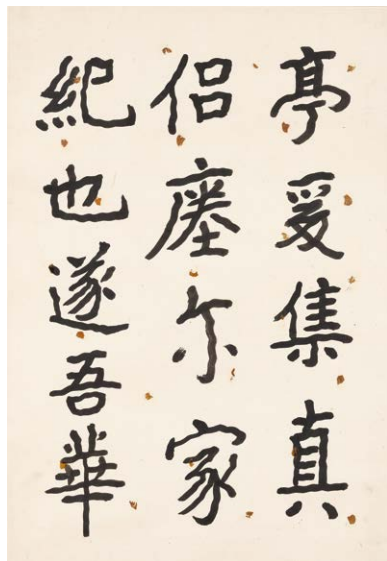 亭爰集真
侣瘞尔家
紀也遂吾華